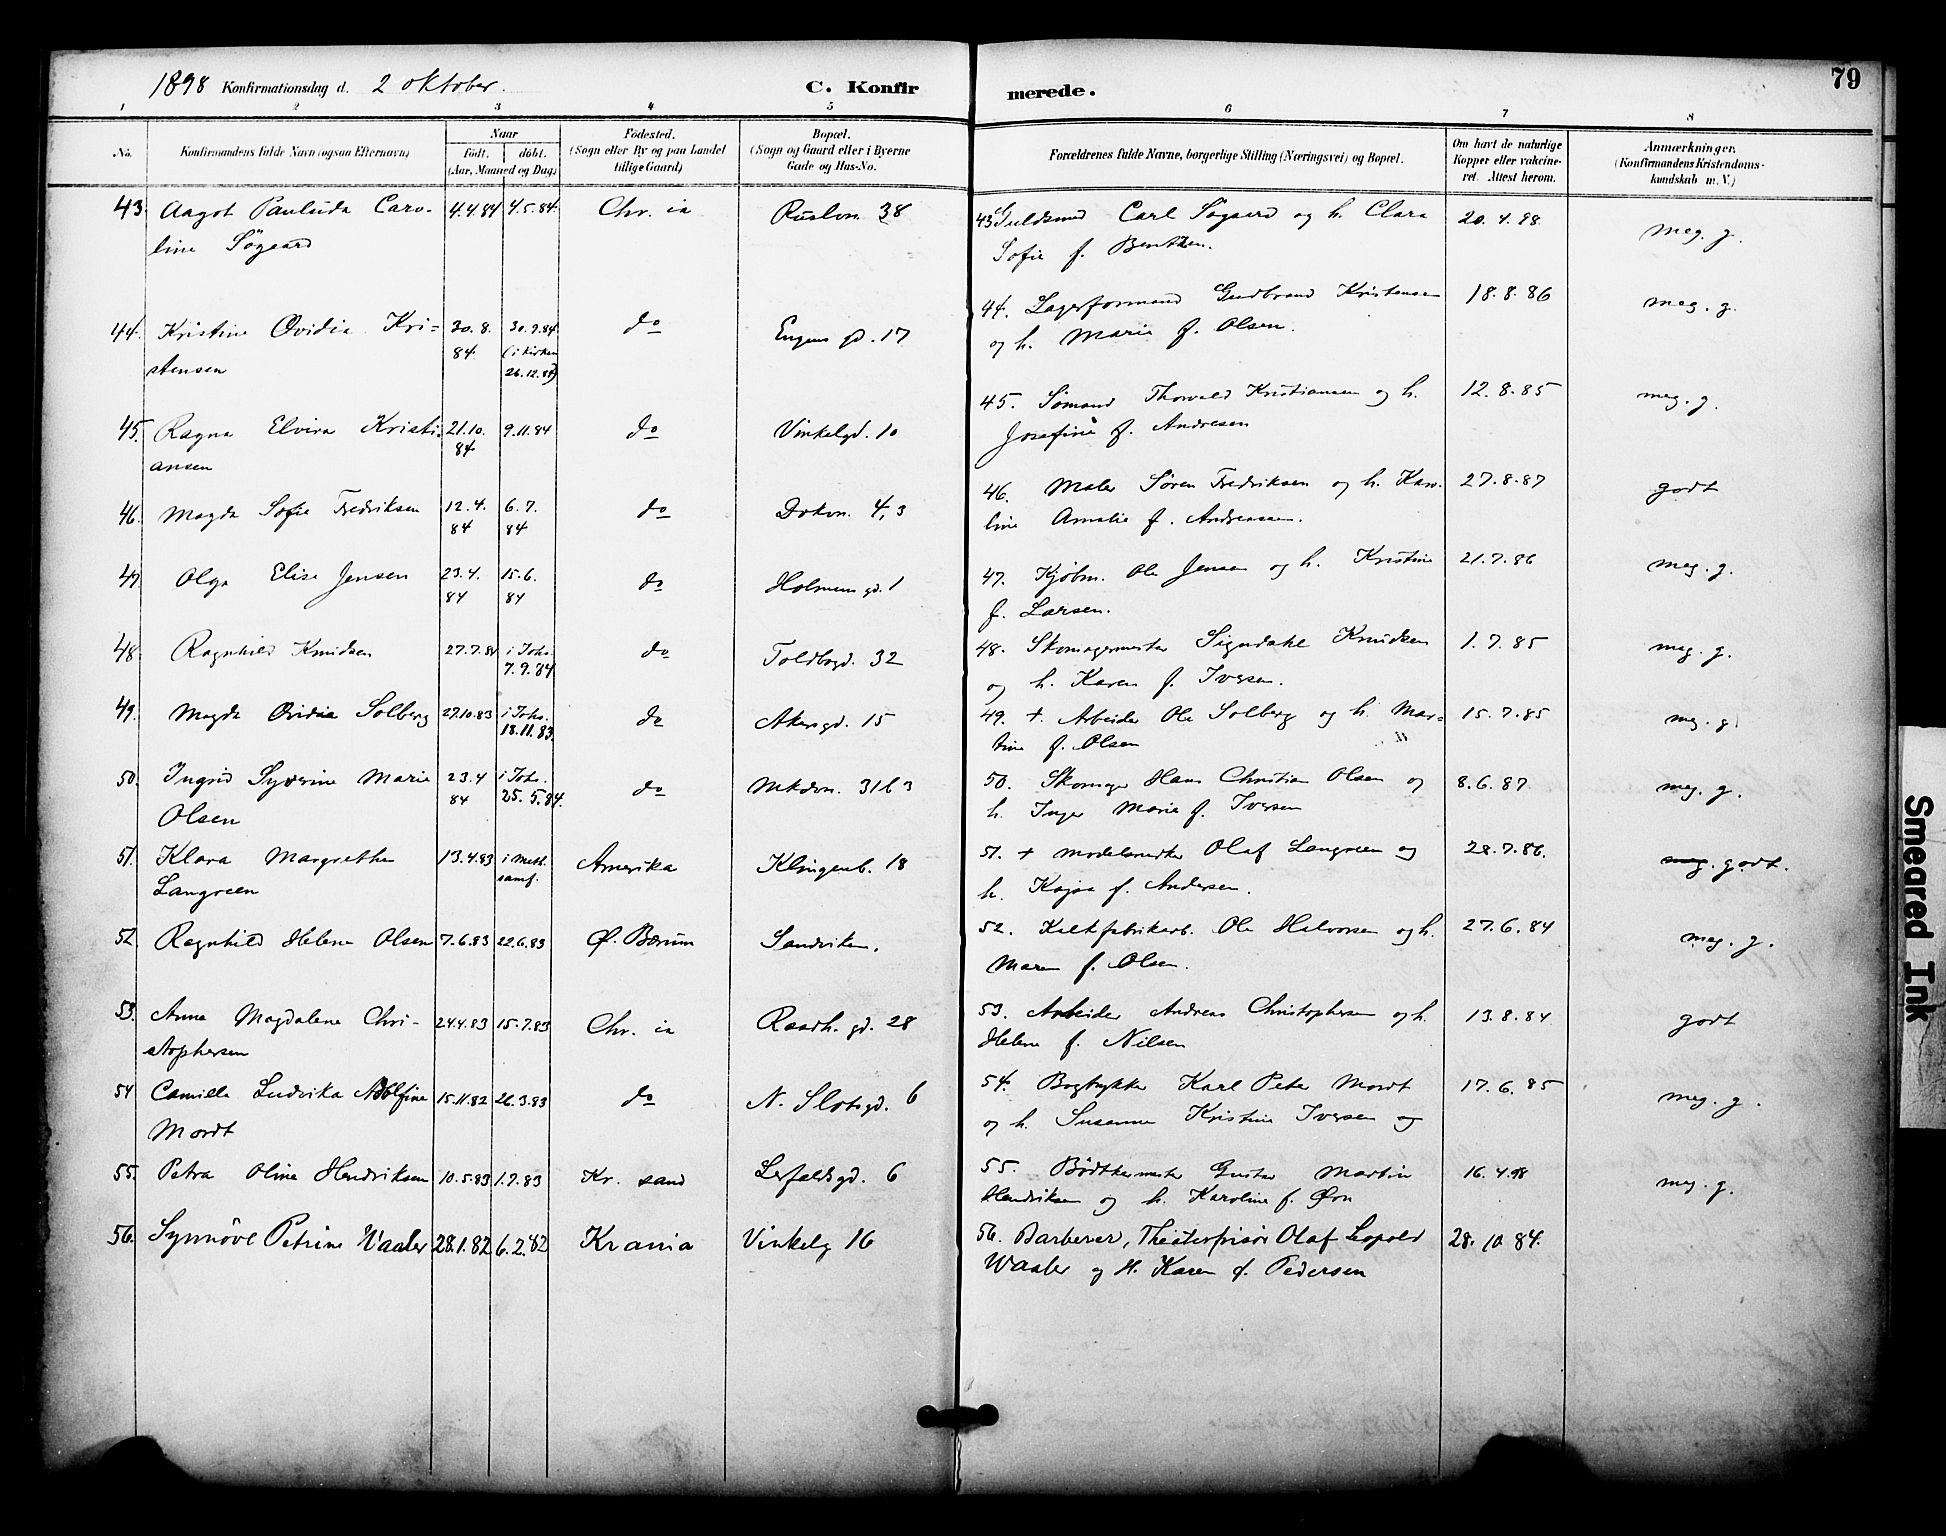 1898 Konfirmationsdag d. 2 oktober.
C. Konfir
merede.
79
1 2 3 4 5 6 7 8
No.
Konfirmandens fulde Navn (ogsaa Efternavn)
Naar
født. døbt.
(Aar, Maaned og Dag)
Fødested.
(Sogn eller By og paa Landet
tillige Gaard)
Bopæl.
(Sogn og Gaard eller i Byerne
Gade og Hus-No.
Forældrenes fulde Navne, borgerlige Stilling (Næringsvei) og Bopæl.
Om havt de naturlige
Kopper eller vakcine-
ret. Attest herom.
Anmærkninger.
(Konfirmandens Kristendoms-
kundskab m. V.)
43. Aagot Paulida Caro- 4.4.84 4.5.84 Chr. ia 38 43 Guldsmed Carl Søgaard og h. Clara 20.4.98 meg. g.
line Søgaard Sofie f. Bentzen.
44. Kristine Ovidia Kri- 30.8. 30.9.84 do Eugens gd. 17 44. Lagerformand Gudbrand Kristensen 18.8.86 meg. g.
stensen 84. (i kirken og h. Marie f. Olsen.
26.12.84)
45. Ragna Elvira Kristi- 21.10. 9.11.84 do Vinkelgd. 10 45. Sømand Thorvald Kristiansen og h. 12.8.85 meg. g.
ansen 84 Josefine f. Andresen
46. Magda Sofie Fredriksen 12.4. 6.7. do Dokvn. 4, 3 46. Maler Søren Fredriksen og h. Karo- 27.8.87 godt
84 84 line Amalie f. Andreassen.
47. Olga Elise Jensen 23.4. 15.6. do Holmens gd. 1 47. Kjøbm. Ole Jensen og h. Kristine 21.7.86 meg. g.
84 84 f. Larsen.
48. Ragnhild Knudsen 27.7.84 i Johs. do Toldbogd. 32 48. Skomagermester Signdahl Knudsen 1.7.85 meg. g.
7.9.84 og h. Karen f. Iversen.
49. Magda Ovidia Solberg 27.10.83 i Johs. do Akersgd. 15 49. + Arbeider Ole Solberg og h. Mar- 15.7.85 meg. g
18.11.83. tine f. Olsen
50. Ingrid Syverine Marie 23.4 i Johs. do Mkdvn. 31 b 3 50. Skomager Hans Christian Olsen og 8.6.87 meg. g.
Olsen 84 25.5.84. h. Inger Marie f. Iversen
51. Klara Margrethe 13.4.83 i Meth. Amerika Klingenb. 18 51. + Modelsnedker Olaf Langreen og 28.7.86. meg. godt.
Langreen samf. h. Kajsa f. Andersen.
52. Ragnhild Helene Olsen 7.6.83 22.6.83 Ø. Bærum Sandviken. 52. Kalkfabrikarb. Ole Halvorsen og h. 27.6.84 meg. g.
Maren f. Olsen.
53. Anna Magdalene Chri- 24.4.83 15.7.83 Chr. ia Raadh. gd. 28 53. Arbeider Andreas Christophersen og h. 13.8.84 godt
stophersen Helene f. Nilsen
54 Camilla Ludvika Adolfine 15.11.82 26.3.83 do N. Slotsgd. 6 54. Bogtrykker Karl Peter Mordt 17.6.85 meg. g.
Mordt og h. Susanne Kristine Iversen og
55. Petra Oline Hendriksen 10.5.83 1.7.83 Kr. sand Lerfaldsgd. 6 55. Bødtkermester Gustav Martin 16.4.98 meg. g.
Hendriksen og h. Karoline f. Øvn
56. Synnöve Petrine Waaler 28.1.82 6.2.82 Krania Vinkelg 16 56. Barberer, Theaterfrisør Olaf Leopold 28.10 84.
Waaler og H. Karen f. Pedersen
Smeared Ink